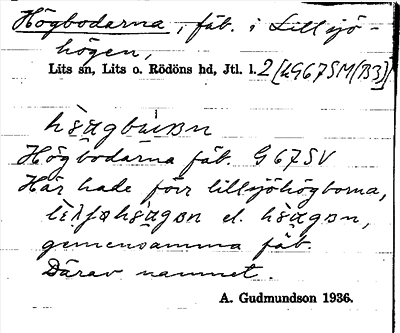 Högbodarna, fäb. i Lillsjö-
högen,
Lits sn, Lits o. Rödöns hd, Jtl. l. 2 [LG67SM(B3)]
Högbodarna fäb. G67SV
Här hade förr lillsjöhögborna,
el.
gemensamma fäb.
Därav namnet.
A. Gudmundson 1936.